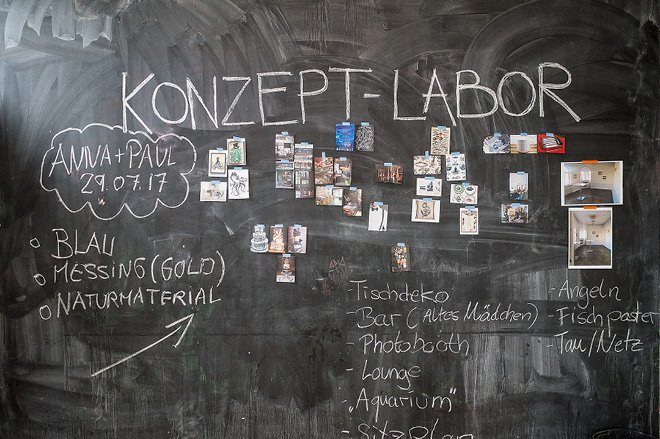 KONZEPT-LABOR
ANNA + PAUL
29.07.17
BLAU
MESSING (GOLD)
NATURMATERIAL
- Tischdeko
- Bar (Altes Mädchen)
- Photobooth
- Lounge
- „Aquarium"
- Sitzplan
- Angeln
- Fischpaster
- Tau/Netz